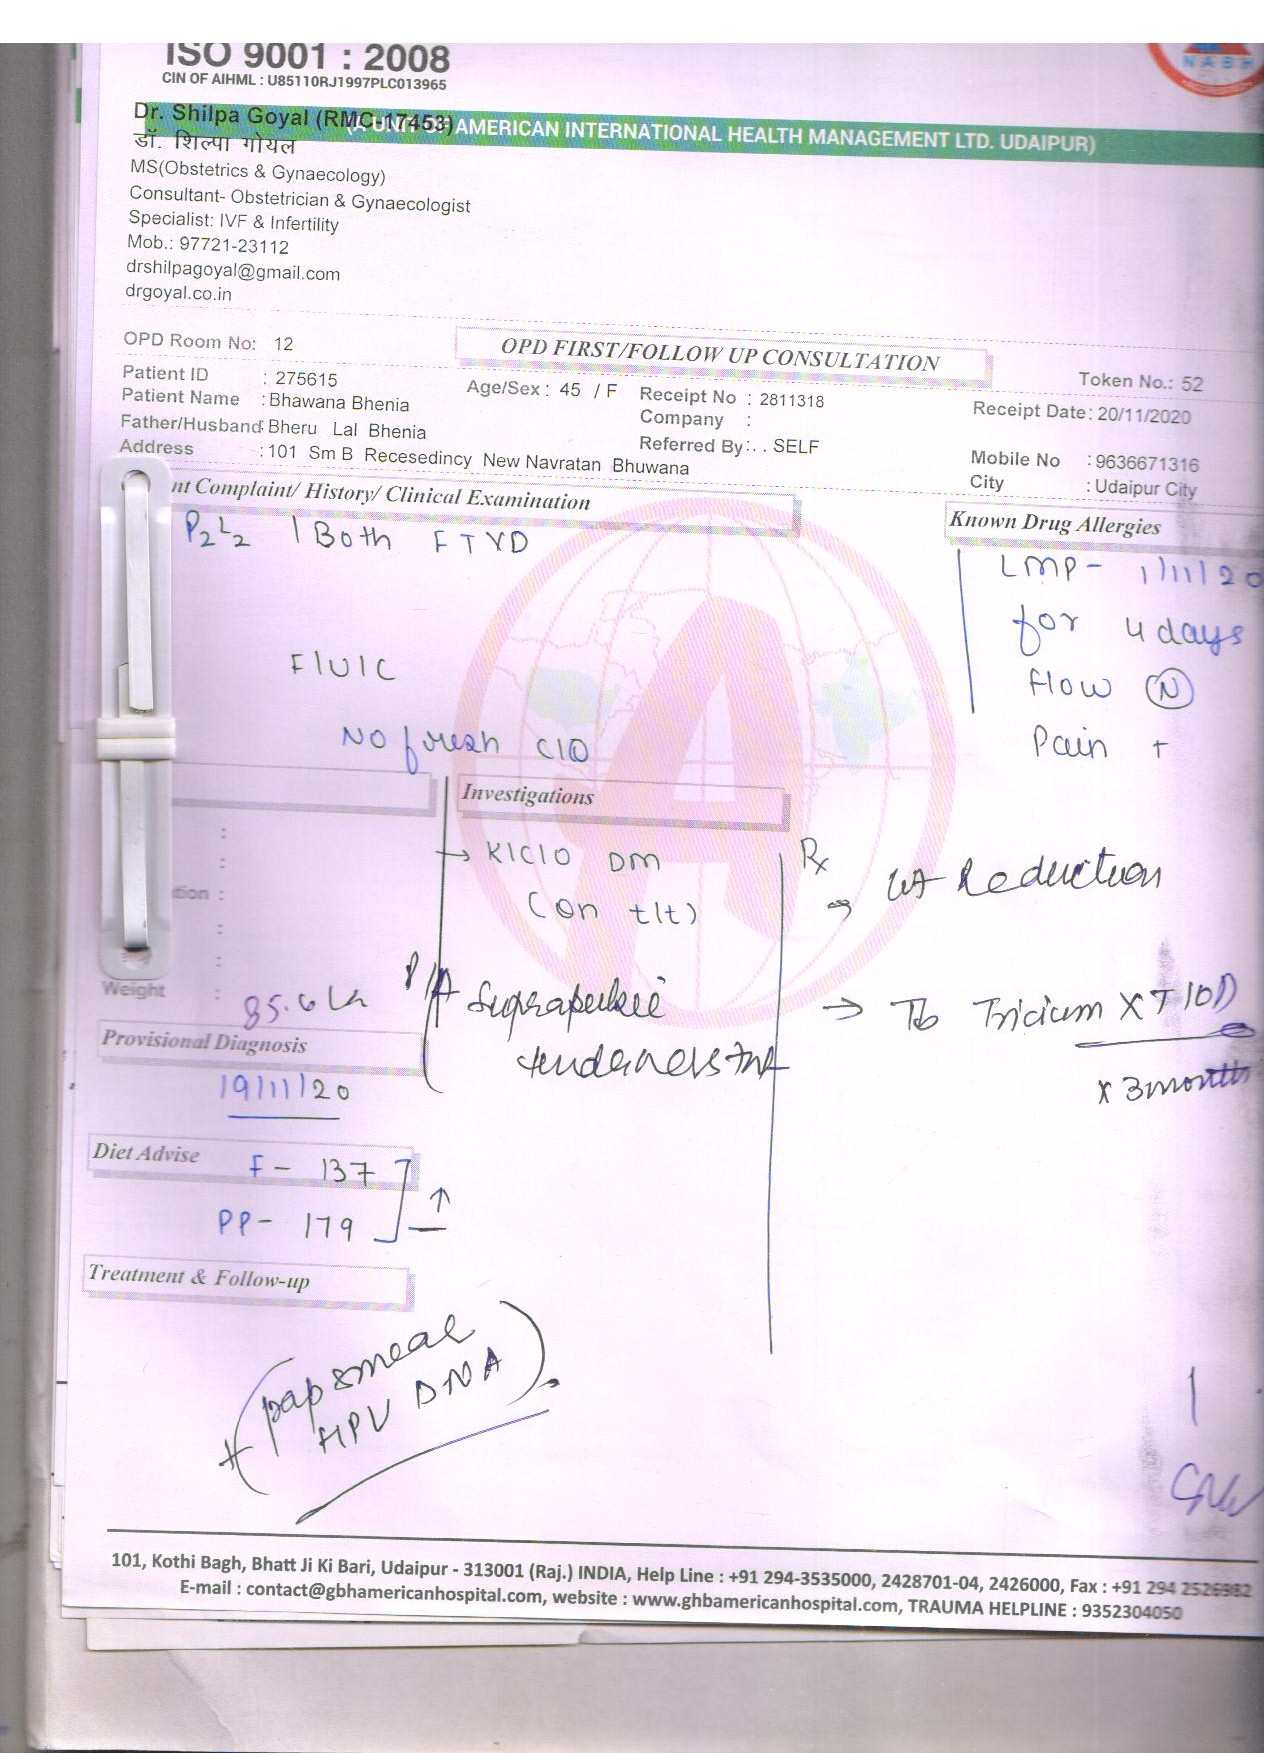 ISO 9001 : 2008
CIN OF AIHML : U85110RJ1997PLC013965
NABH
Dr. Shilpa Goyal (RMC-17453)
(A UNIT OF AMERICAN INTERNATIONAL HEALTH MANAGEMENT LTD. UDAIPUR)
डॉ. शिल्पा गोयल
MS(Obstetrics & Gynaecology)
Consultant- Obstetrician & Gynaecologist
Specialist: IVF & Infertility
Mob.: 97721-23112
drshilpagoyal@gmail.com
drgoyal.co.in
OPD Room No: 12
OPD FIRST/FOLLOW UP CONSULTATION
Token No.: 52
Patient ID : 275615
Age/Sex : 45 / F
Receipt No : 2811318
Receipt Date: 20/11/2020
Patient Name : Bhawana Bhenia
Company :
Father/Husband: Bheru Lal Bhenia
Referred By: . . SELF
Mobile No : 9636671316
Address : 101 Sm B Recesedincy New Navratan Bhuwana
City : Udaipur City
nt Complaint/ History/ Clinical Examination
Known Drug Allergies
P2L2 | Both FTVD
LMP- 1/11/20
for 4 days
flow (N)
Pain +
F/U/C
No fresh C/O
Investigations
→ K/C/O DM
(on t/t)
Rx
→ Wt Reduction
tion :
Weight : 85.6
P/A Suprapubic
tenderness
→ Tb Tricium X
x 3 months
Provisional Diagnosis
19/11/20
Diet Advise
F- 137
PP- 179 ↑
Treatment & Follow-up
pap smear
HPV DNA
101, Kothi Bagh, Bhatt Ji Ki Bari, Udaipur - 313001 (Raj.) INDIA, Help Line : +91 294-3535000, 2428701-04, 2426000, Fax : +91 294 2526982
E-mail : contact@gbhamericanhospital.com, website : www.ghbamericanhospital.com, TRAUMA HELPLINE : 9352304050